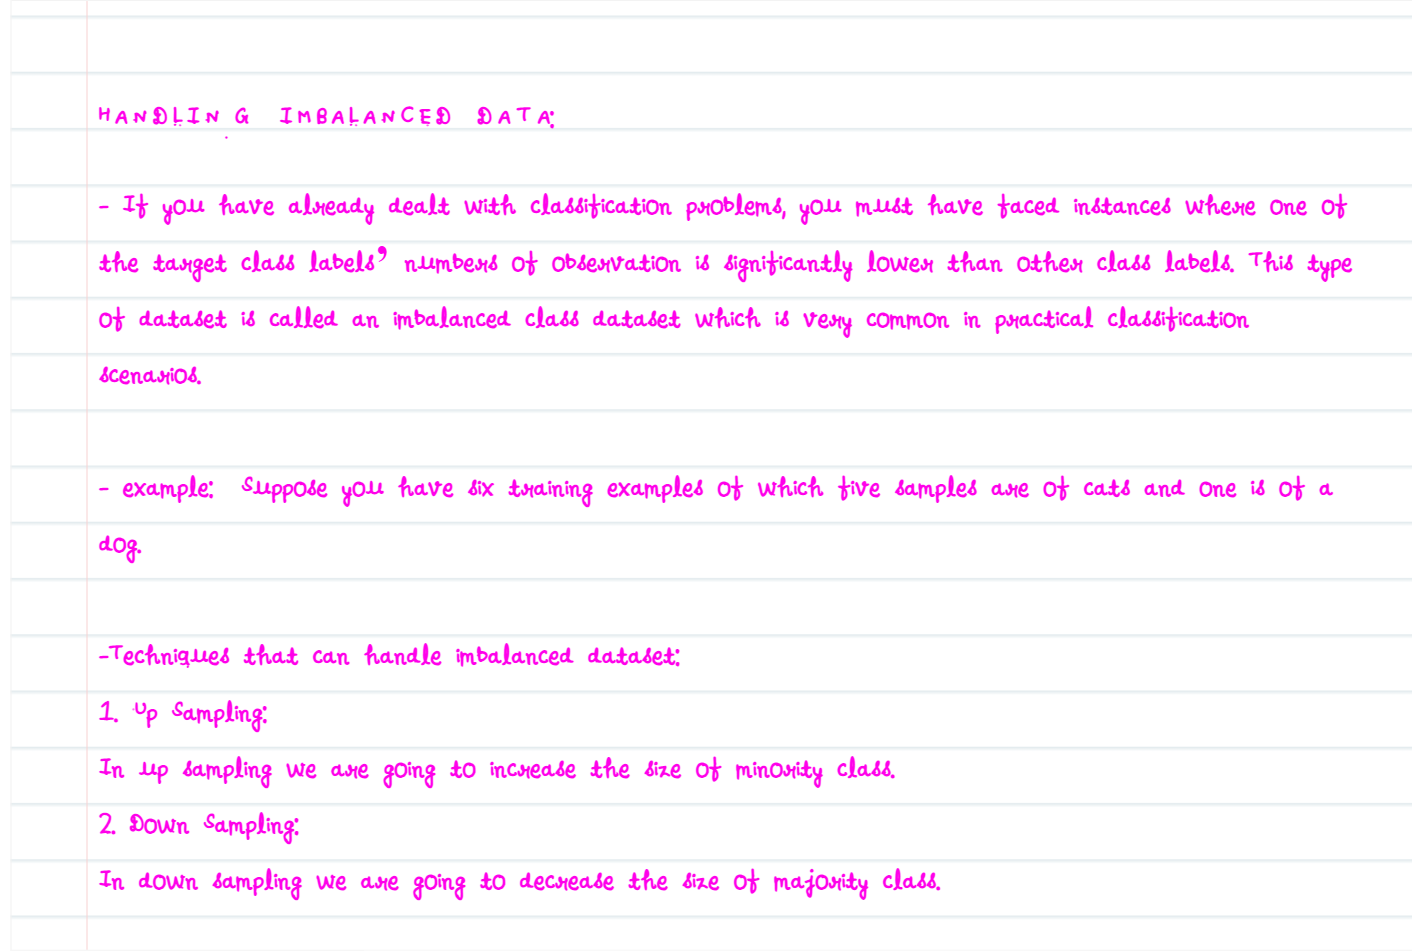 HANDLING IMBALANCED DATA:
- If you have already dealt with classification problems, you must have faced instances where one of
the target class labels' numbers of observation is significantly lower than other class labels. This type
of dataset is called an imbalanced class dataset which is very common in practical classification
scenarios.
- example: Suppose you have six training examples of which five samples are of cats and one is of a
dog.
-Techniques that can handle imbalanced dataset:
1. Up Sampling:
In up sampling we are going to increase the size of minority class.
2. Down Sampling:
In down sampling we are going to decrease the size of majority class.